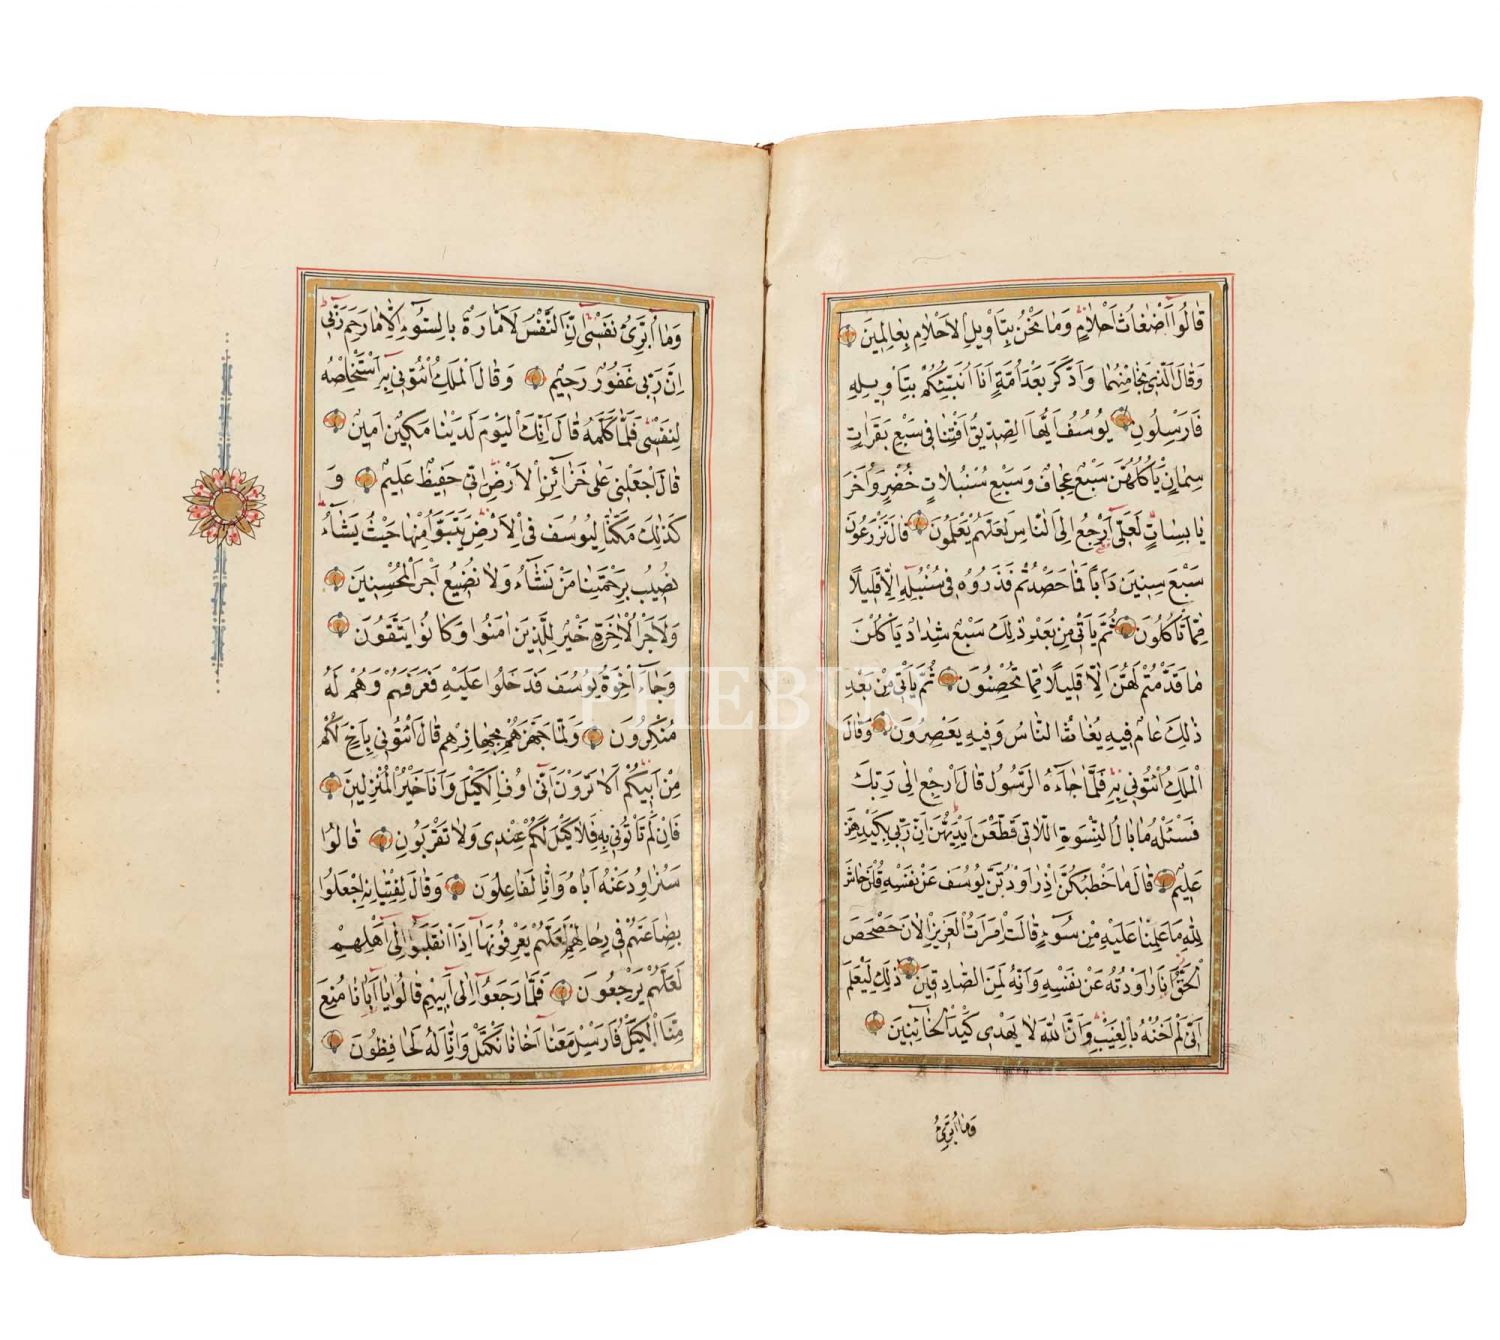 قَالُوا أَضْغَاثُ أَحْلَامٍ وَمَا نَحْنُ بِتَأْوِيلِ الْأَحْلَامِ بِعَالِمِينَ
وَقَالَ الَّذِي نَجَا مِنْهُمَا وَادَّكَرَ بَعْدَ أُمَّةٍ أَنَا أُنَبِّئُكُمْ بِتَأْوِيلِهِ
فَأَرْسِلُونِ يُوسُفُ أَيُّهَا الصِّدِّيقُ أَفْتِنَا فِي سَبْعِ بَقَرَاتٍ
سِمَانٍ يَأْكُلُهُنَّ سَبْعٌ عِجَافٌ وَسَبْعِ سُنْبُلَاتٍ خُضْرٍ وَأُخَرَ
يَابِسَاتٍ لَعَلِّي أَرْجِعُ إِلَى النَّاسِ لَعَلَّهُمْ يَعْلَمُونَ قَالَ تَزْرَعُونَ
سَبْعَ سِنِينَ دَأَبًا فَمَا حَصَدْتُمْ فَذَرُوهُ فِي سُنْبُلِهِ إِلَّا قَلِيلًا
مِمَّا تَأْكُلُونَ ثُمَّ يَأْتِي مِنْ بَعْدِ ذَلِكَ سَبْعٌ شِدَادٌ يَأْكُلْنَ
مَا قَدَّمْتُمْ لَهُنَّ إِلَّا قَلِيلًا مِمَّا تُحْصِنُونَ ثُمَّ يَأْتِي مِنْ بَعْدِ
ذَلِكَ عَامٌ فِيهِ يُغَاثُ النَّاسُ وَفِيهِ يَعْصِرُونَ وَقَالَ
الْمَلِكُ ائْتُونِي بِهِ فَلَمَّا جَاءَهُ الرَّسُولُ قَالَ ارْجِعْ إِلَى رَبِّكَ
فَسْئَلْهُ مَا بَالُ النِّسْوَةِ اللَّاتِي قَطَّعْنَ أَيْدِيَهُنَّ إِنَّ رَبِّي بِكَيْدِهِنَّ
عَلِيمٌ قَالَ مَا خَطْبُكُنَّ إِذْ رَاوَدْتُنَّ يُوسُفَ عَنْ نَفْسِهِ قُلْنَ حَاشَ
لِلَّهِ مَا عَلِمْنَا عَلَيْهِ مِنْ سُوءٍ قَالَتِ امْرَأَتُ الْعَزِيزِ الْآنَ حَصْحَصَ
الْحَقُّ أَنَا رَاوَدْتُهُ عَنْ نَفْسِهِ وَإِنَّهُ لَمِنَ الصَّادِقِينَ ذَلِكَ لِيَعْلَمَ
أَنِّي لَمْ أَخُنْهُ بِالْغَيْبِ وَأَنَّ اللَّهَ لَا يَهْدِي كَيْدَ الْخَائِنِينَ
وَمَا أُبَرِّئُ
وَمَا أُبَرِّئُ نَفْسِي إِنَّ النَّفْسَ لَأَمَّارَةٌ بِالسُّوءِ إِلَّا مَا رَحِمَ رَبِّي
إِنَّ رَبِّي غَفُورٌ رَحِيمٌ وَقَالَ الْمَلِكُ ائْتُونِي بِهِ أَسْتَخْلِصْهُ
لِنَفْسِي فَلَمَّا كَلَّمَهُ قَالَ إِنَّكَ الْيَوْمَ لَدَيْنَا مَكِينٌ أَمِينٌ
قَالَ اجْعَلْنِي عَلَى خَزَائِنِ الْأَرْضِ إِنِّي حَفِيظٌ عَلِيمٌ وَ
كَذَلِكَ مَكَّنَّا لِيُوسُفَ فِي الْأَرْضِ يَتَبَوَّأُ مِنْهَا حَيْثُ يَشَاءُ
نُصِيبُ بِرَحْمَتِنَا مَنْ نَشَاءُ وَلَا نُضِيعُ أَجْرَ الْمُحْسِنِينَ
وَلَأَجْرُ الْآخِرَةِ خَيْرٌ لِلَّذِينَ آمَنُوا وَكَانُوا يَتَّقُونَ
وَجَاءَ إِخْوَةُ يُوسُفَ فَدَخَلُوا عَلَيْهِ فَعَرَفَهُمْ وَهُمْ لَهُ
مُنْكِرُونَ وَلَمَّا جَهَّزَهُمْ بِجَهَازِهِمْ قَالَ ائْتُونِي بِأَخٍ لَكُمْ
مِنْ أَبِيكُمْ أَلَا تَرَوْنَ أَنِّي أُوفِي الْكَيْلَ وَأَنَا خَيْرُ الْمُنْزِلِينَ
فَإِنْ لَمْ تَأْتُونِي بِهِ فَلَا كَيْلَ لَكُمْ عِنْدِي وَلَا تَقْرَبُونِ قَالُوا
سَنُرَاوِدُ عَنْهُ أَبَاهُ وَإِنَّا لَفَاعِلُونَ وَقَالَ لِفِتْيَانِهِ اجْعَلُوا
بِضَاعَتَهُمْ فِي رِحَالِهِمْ لَعَلَّهُمْ يَعْرِفُونَهَا إِذَا انْقَلَبُوا إِلَى أَهْلِهِمْ
لَعَلَّهُمْ يَرْجِعُونَ فَلَمَّا رَجَعُوا إِلَى أَبِيهِمْ قَالُوا يَا أَبَانَا مُنِعَ
مِنَّا الْكَيْلُ فَأَرْسِلْ مَعَنَا أَخَانَا نَكْتَلْ وَإِنَّا لَهُ لَحَافِظُونَ
PHEBUS